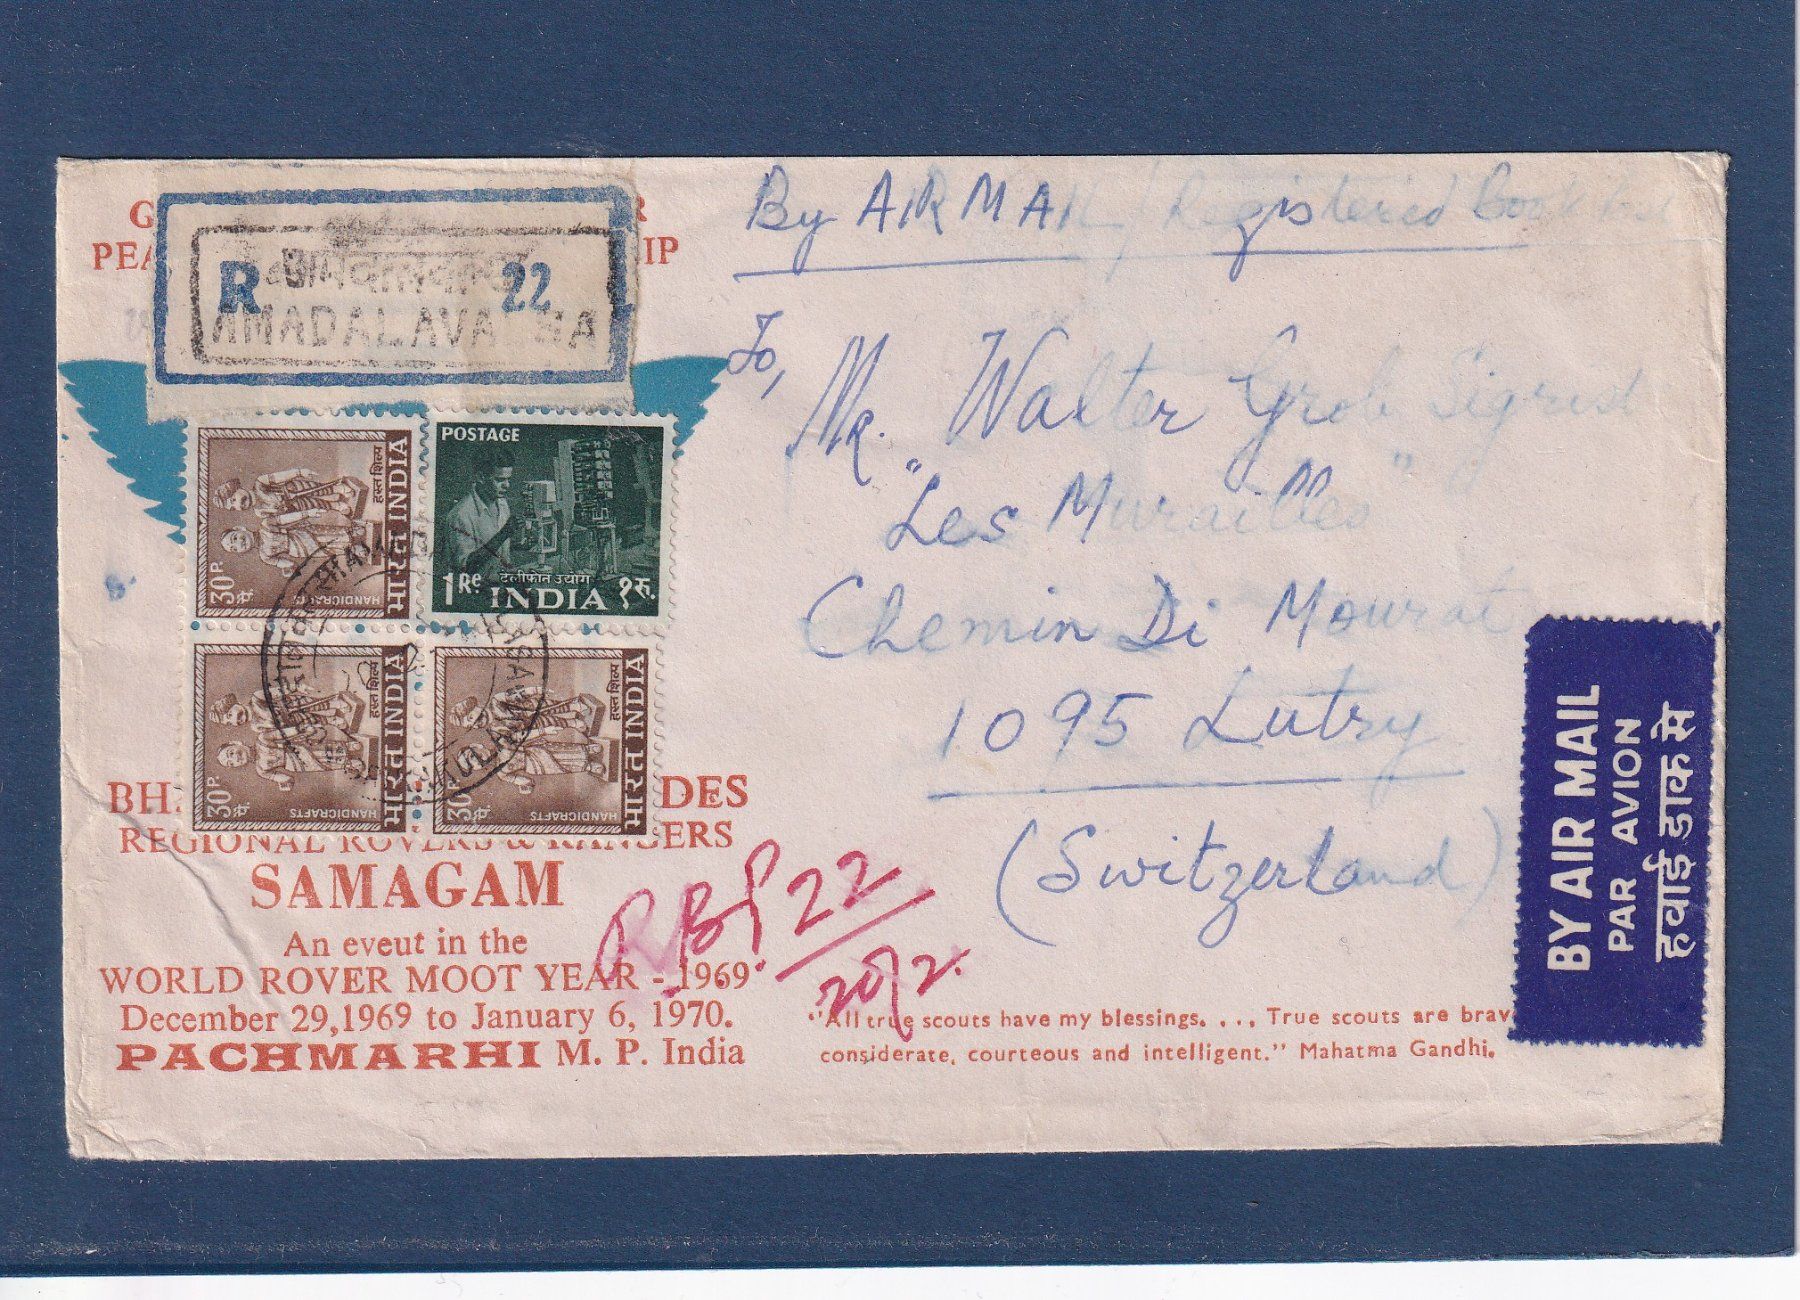 By AIR MAIL / Registered Book Post
R 22
AMADALAVA
PEA IP
To,
Mr. Walter Grob Sigrist
"Les Murailles"
Chemin Di Mourat
1095 Lutry
(Switzerland)
POSTAGE
1 Re टेलीफोन उद्योग १ रु.
INDIA
30 P. HANDICRAFTS हस्त शिल्प भारत INDIA
30 P. HANDICRAFTS हस्त शिल्प भारत INDIA
30 P. HANDICRAFTS हस्त शिल्प भारत INDIA
BY AIR MAIL
PAR AVION
हवाई डाक से
BH DES
REGIONAL ROVERS & RANGERS
SAMAGAM
An eveut in the
WORLD ROVER MOOT YEAR - 1969
December 29,1969 to January 6, 1970.
PACHMARHI M. P. India
RBP 22
20/2.
"All true scouts have my blessings. . . ., True scouts are brav
considerate, courteous and intelligent." Mahatma Gandhi.